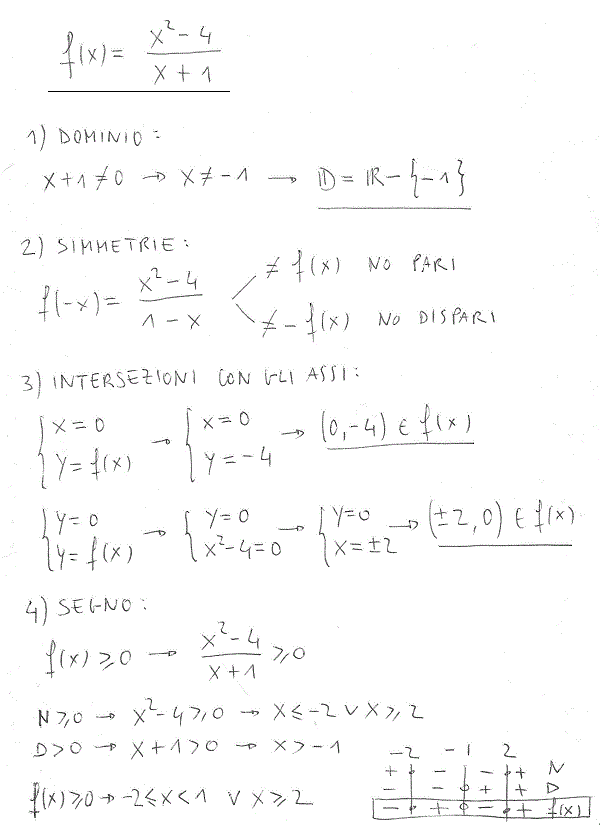 f(x) = (x² - 4)/(x + 1)
1) DOMINIO:
x + 1 ≠ 0 → x ≠ -1 → D = ℝ - {-1}
2) SIMMETRIE:
f(-x) = (x² - 4)/(1 - x)
≠ f(x) NO PARI
≠ -f(x) NO DISPARI
3) INTERSEZIONI CON GLI ASSI:
{ x = 0, y = f(x) → { x = 0, y = -4 → (0, -4) ∈ f(x)
{ y = 0, y = f(x) → { y = 0, x² - 4 = 0 → { y = 0, x = ±2 → (±2, 0) ∈ f(x)
4) SEGNO:
f(x) ≥ 0 → (x² - 4)/(x + 1) ≥ 0
N ≥ 0 → x² - 4 ≥ 0 → x ≤ -2 ∨ x ≥ 2
D > 0 → x + 1 > 0 → x > -1
f(x) ≥ 0 → -2 ≤ x < 1 ∨ x ≥ 2
-2 -1 2
+ - - + N
- - + + D
- + - + f(x)